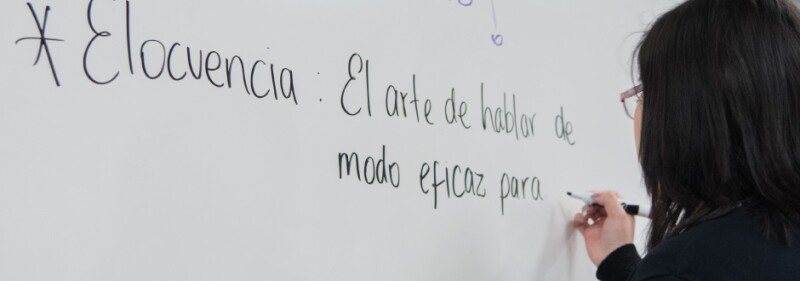 * Elocuencia : El arte de hablar de
modo eficaz para